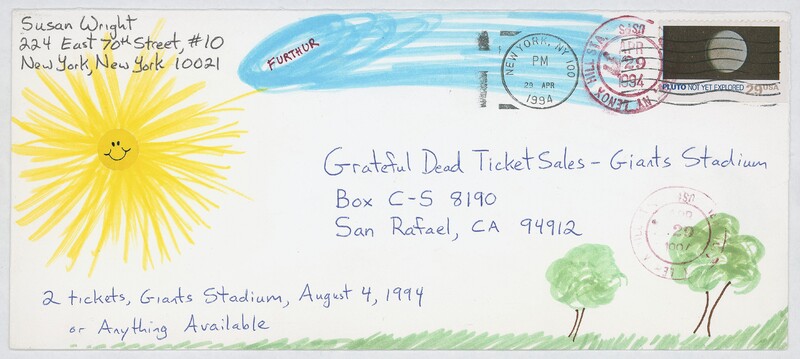 Susan Wright
224 East 70th Street, #10
New York, New York 10021
FURTHUR
NEW YORK, NY 100
PM
29 APR
1994
LENOX HILL STA. NY
USPS
APR
29
1994
PLUTO NOT YET EXPLORED 29 USA
Grateful Dead Ticket Sales – Giants Stadium
Box C-S 8190
San Rafael, CA 94912
USPS
29
2 tickets, Giants Stadium, August 4, 1994
or Anything Available